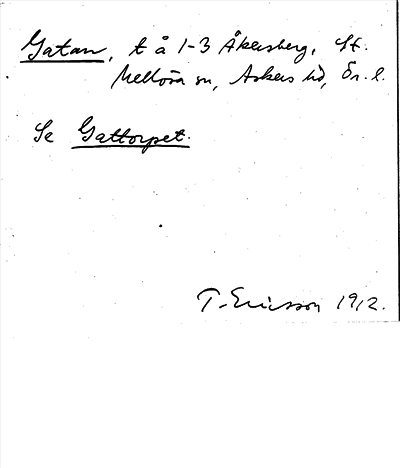 Gatan, t å 1-3 Åkersberg, St.
Mellösa sn, Askers hd, Ör. l.
Se Gattorpet.
T. Ericsson 1912.